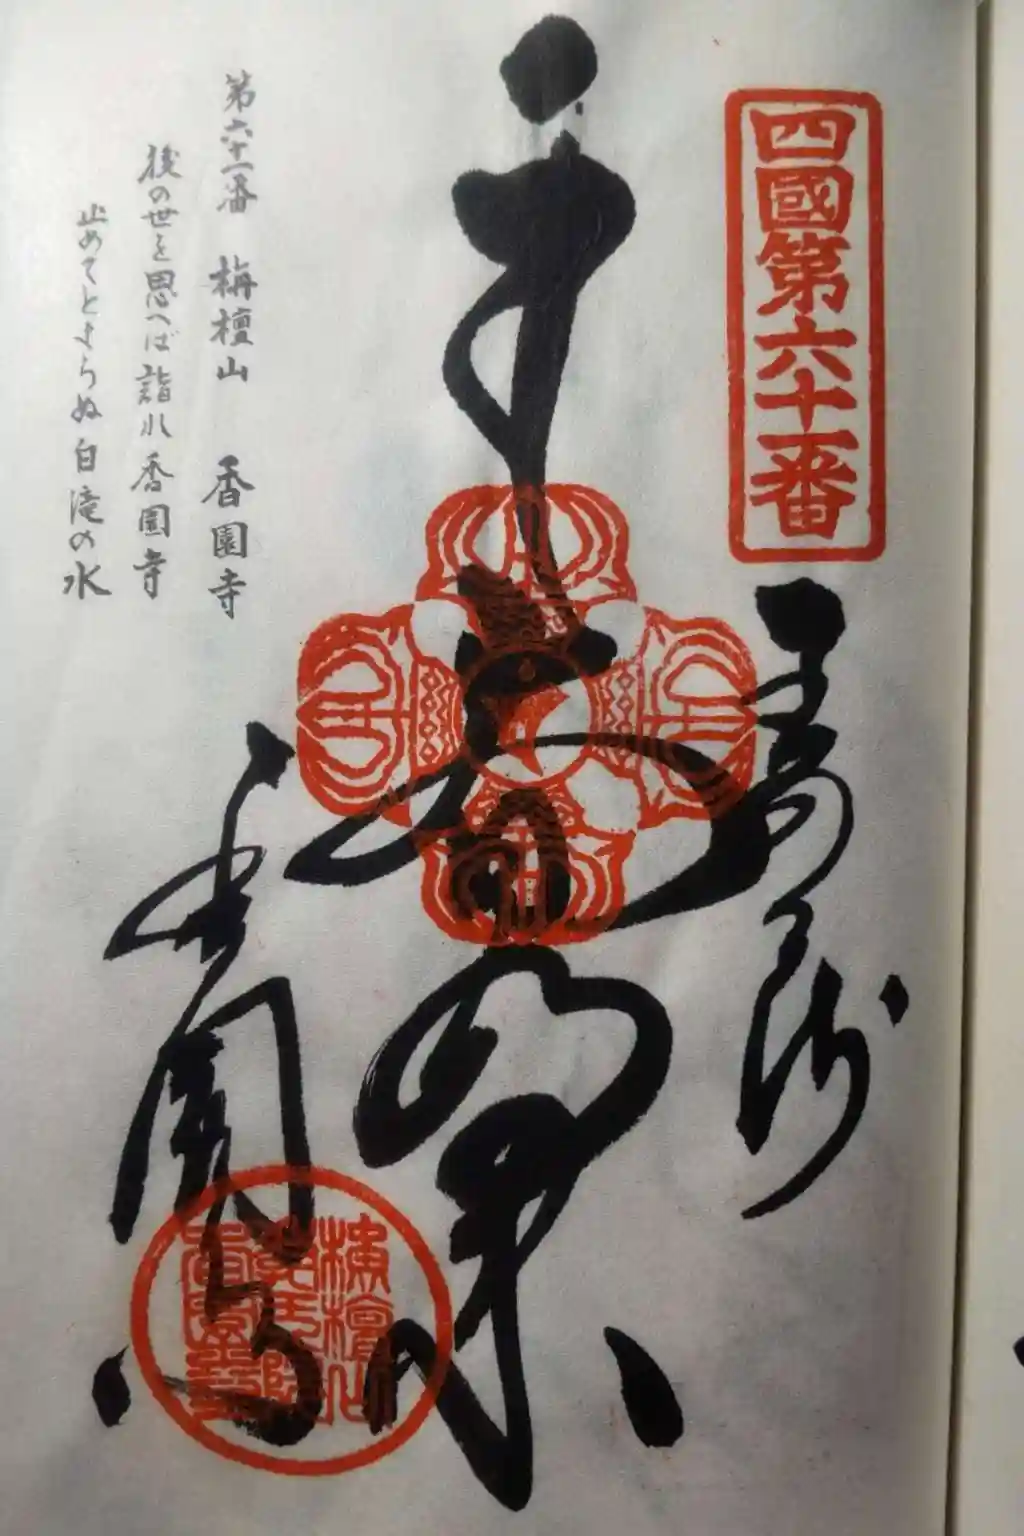 四國第六十一番
大日如来
香園寺
栴檀山
教王院
香園寺
第六十一番 栴檀山 香園寺
後の世を思へば詣れ香園寺
止めてとまらぬ白滝の水